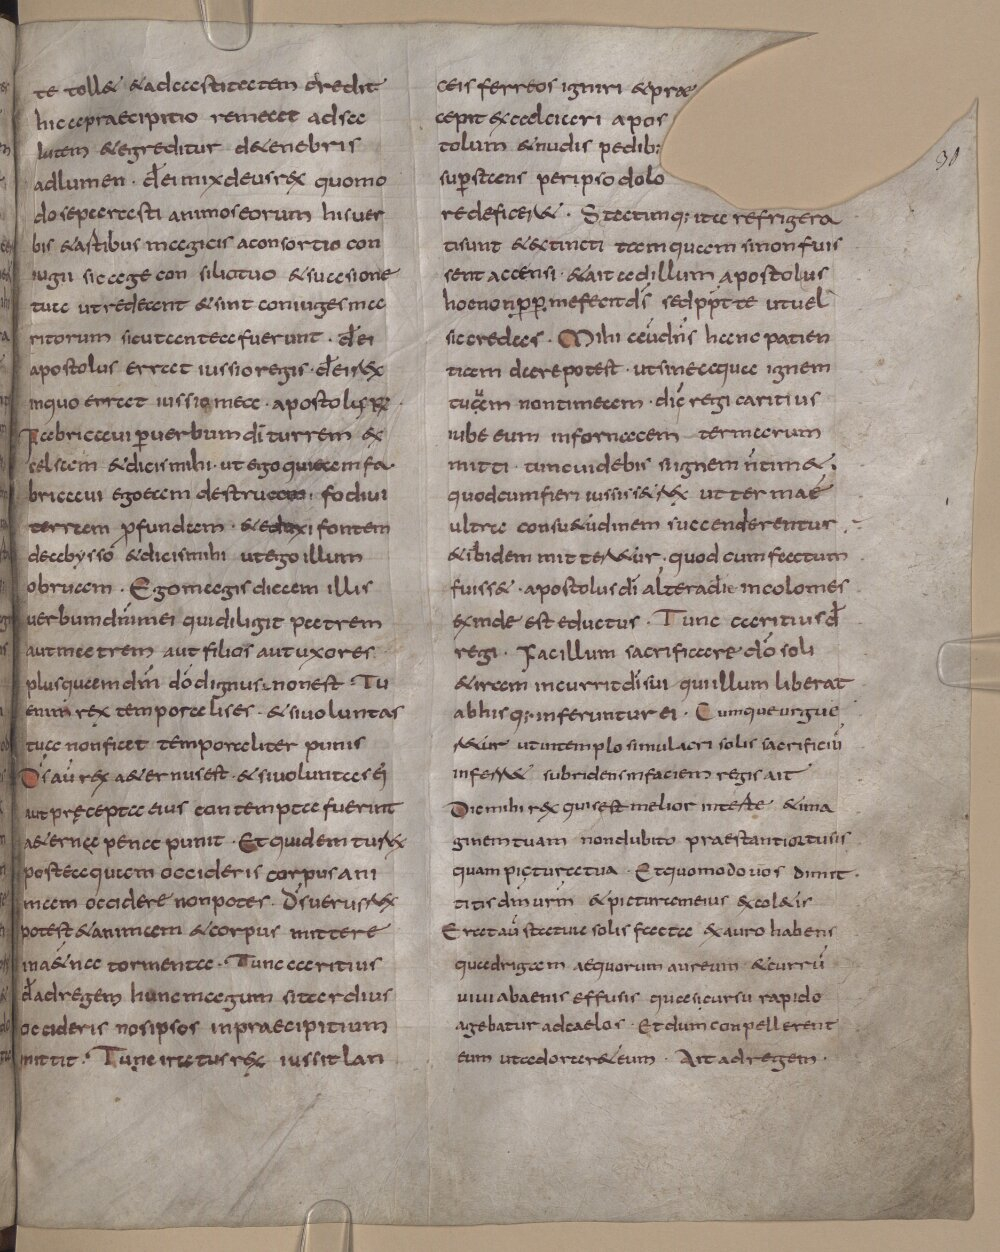 te toll& &adccestitectem ċredit
hicccpraecipitio remecct adscc
lutem &egreditur d&enebris
adlumen · đ ei mixdeus rex quomo
do sepeercesti animos eorum his uer
bis &astibus mcegicis aconsortio con
iugii siccege con siliotuo &succesione
tucc ut redeccnt &sint coniuges mcc
ritorum sicut ccnteccfuerunt · đ ei
apostolus erreet iussio regis · đ ei rex
inquo erreet iussio mecc · apostolus
Fcebriccccui puerbum dī turrem ex
celsccm &dicis mihi · ut ego quiccemfa
briccccui egoecem destruccm · fodiui
terrccm profundccm · &eduxi fontem
deccbysso &dicismihi ut ego illum
obruccm · Ego mccgis diccem illis
uerbum dnī mei qui diligit pcctrem
aut mcctrem aut filios aut uxores
plusquccm dm̄ dō dignus nonest · Tu
enim rex temporcelis es · &siuoluntas
tucc nonfi&et temporccliter punis
Dīs aū rex a&ernus est · &siuoluntccs ei
aut preceptcc eius contemptcc fuerint
a&erncc pencc punit · Et quidem tu rex
postecc quccm occideris corpus ani
mccm occidere non potes · Dīs uerus rex
potest &animccm &corpus mittere
ina&ernce tormentcc · Tunc ccaritius
đ adregem hunc mccgum sitccrdius
occideris nos ipsos inpraecipitium
mittit · Tunc ircetus rex iussit lan
ceis ferreos igniri &prae
cepit excccclciccri apos
tolum &nudis pedib;
super stcens per ipso dolo
re deficer& · Stcctimq; itcc refrigera
ti sunt &extincti tccm quccm sinon fuis
sent accensi · &ait ccd illum apostolus
hocnon pp̄ me fecit dī sed pp̄ te ut uel
sic credces · Mihi ccudris hccnc patien
ticcm dccre potest · ut sine ccquce ignem
tuccm non timeccm · dic regi caritius
iube eum infornccem termccrum
mitti · tunc uidebis si ignem n̄ tim& ·
quodcum fieri iussiss& rex ut termae
ultrcc consu&udinem succenderentur ·
&ibidem mitter&ur · quod cum fcctum
fuiss& · apostolus dī altera die incolomes
exinde est eductus · Tunc ccaritius đ
regi · Fac illum sacrificcere dō soli
&ircem incurrit dī sui qui illum liberat
abhis q; inferuntur ei · Cumque urgue
r&ur ut intemplo simulacri solis sacrificiū
infer& subridens infaciem regis ait
Dic mihi rex quis est melior inte ste &ima
ginem tuam non dubito praestantior tu sis
quam picturcc tua · Et quomodo uos dimit ·
titis dm̄ urm̄ &picturccm eius &col&is
Erat aū stcctucc solis fcctcc ex auro habens
quccdrigccm aequorum aureum &currū
uiui abaenis effusis quccsi cursu rapido
agebatur adcaelos · Et dum conpellerent
eum ut ccdorcer& eum · Ait ad regem ·
30